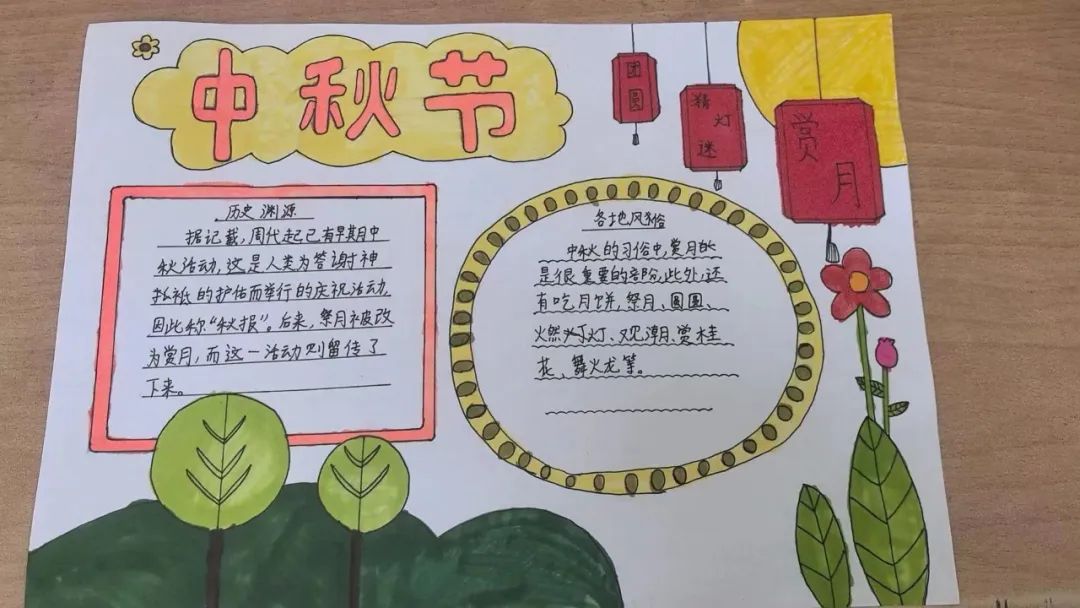 中秋节
团圆
精灯迷
赏月
历史渊源
据记载,周代起已有早期中
秋活动,这是人类为答谢神
祇的护佑而举行的庆祝活动,
因此称“秋报”。后来,祭月被改
为赏月,而这一活动则留传了
下来。
各地风俗
中秋的习俗中,赏月
是很重要的部分,此外,还
有吃月饼,祭月、团圆、
燃灯、观潮、赏桂
花、舞火龙等。